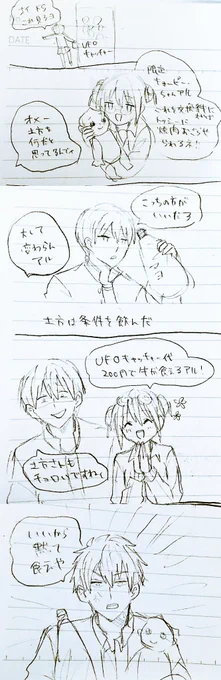 DATE
UFO
キャッチャー
限定
キューピー
ちゃんアル
これを交換料に
トッシーに
焼肉おごらせ
られるネ!
オメー
土方を
何だと
思ってるんでィ
こっちの方が
いいだろ
大して
変わらん
アル
土方は条件を飲んだ
UFOキャッチャー代
200円で牛が食えるアル!
土方さんも
チョロいですねィ
いいから
黙って
食えや